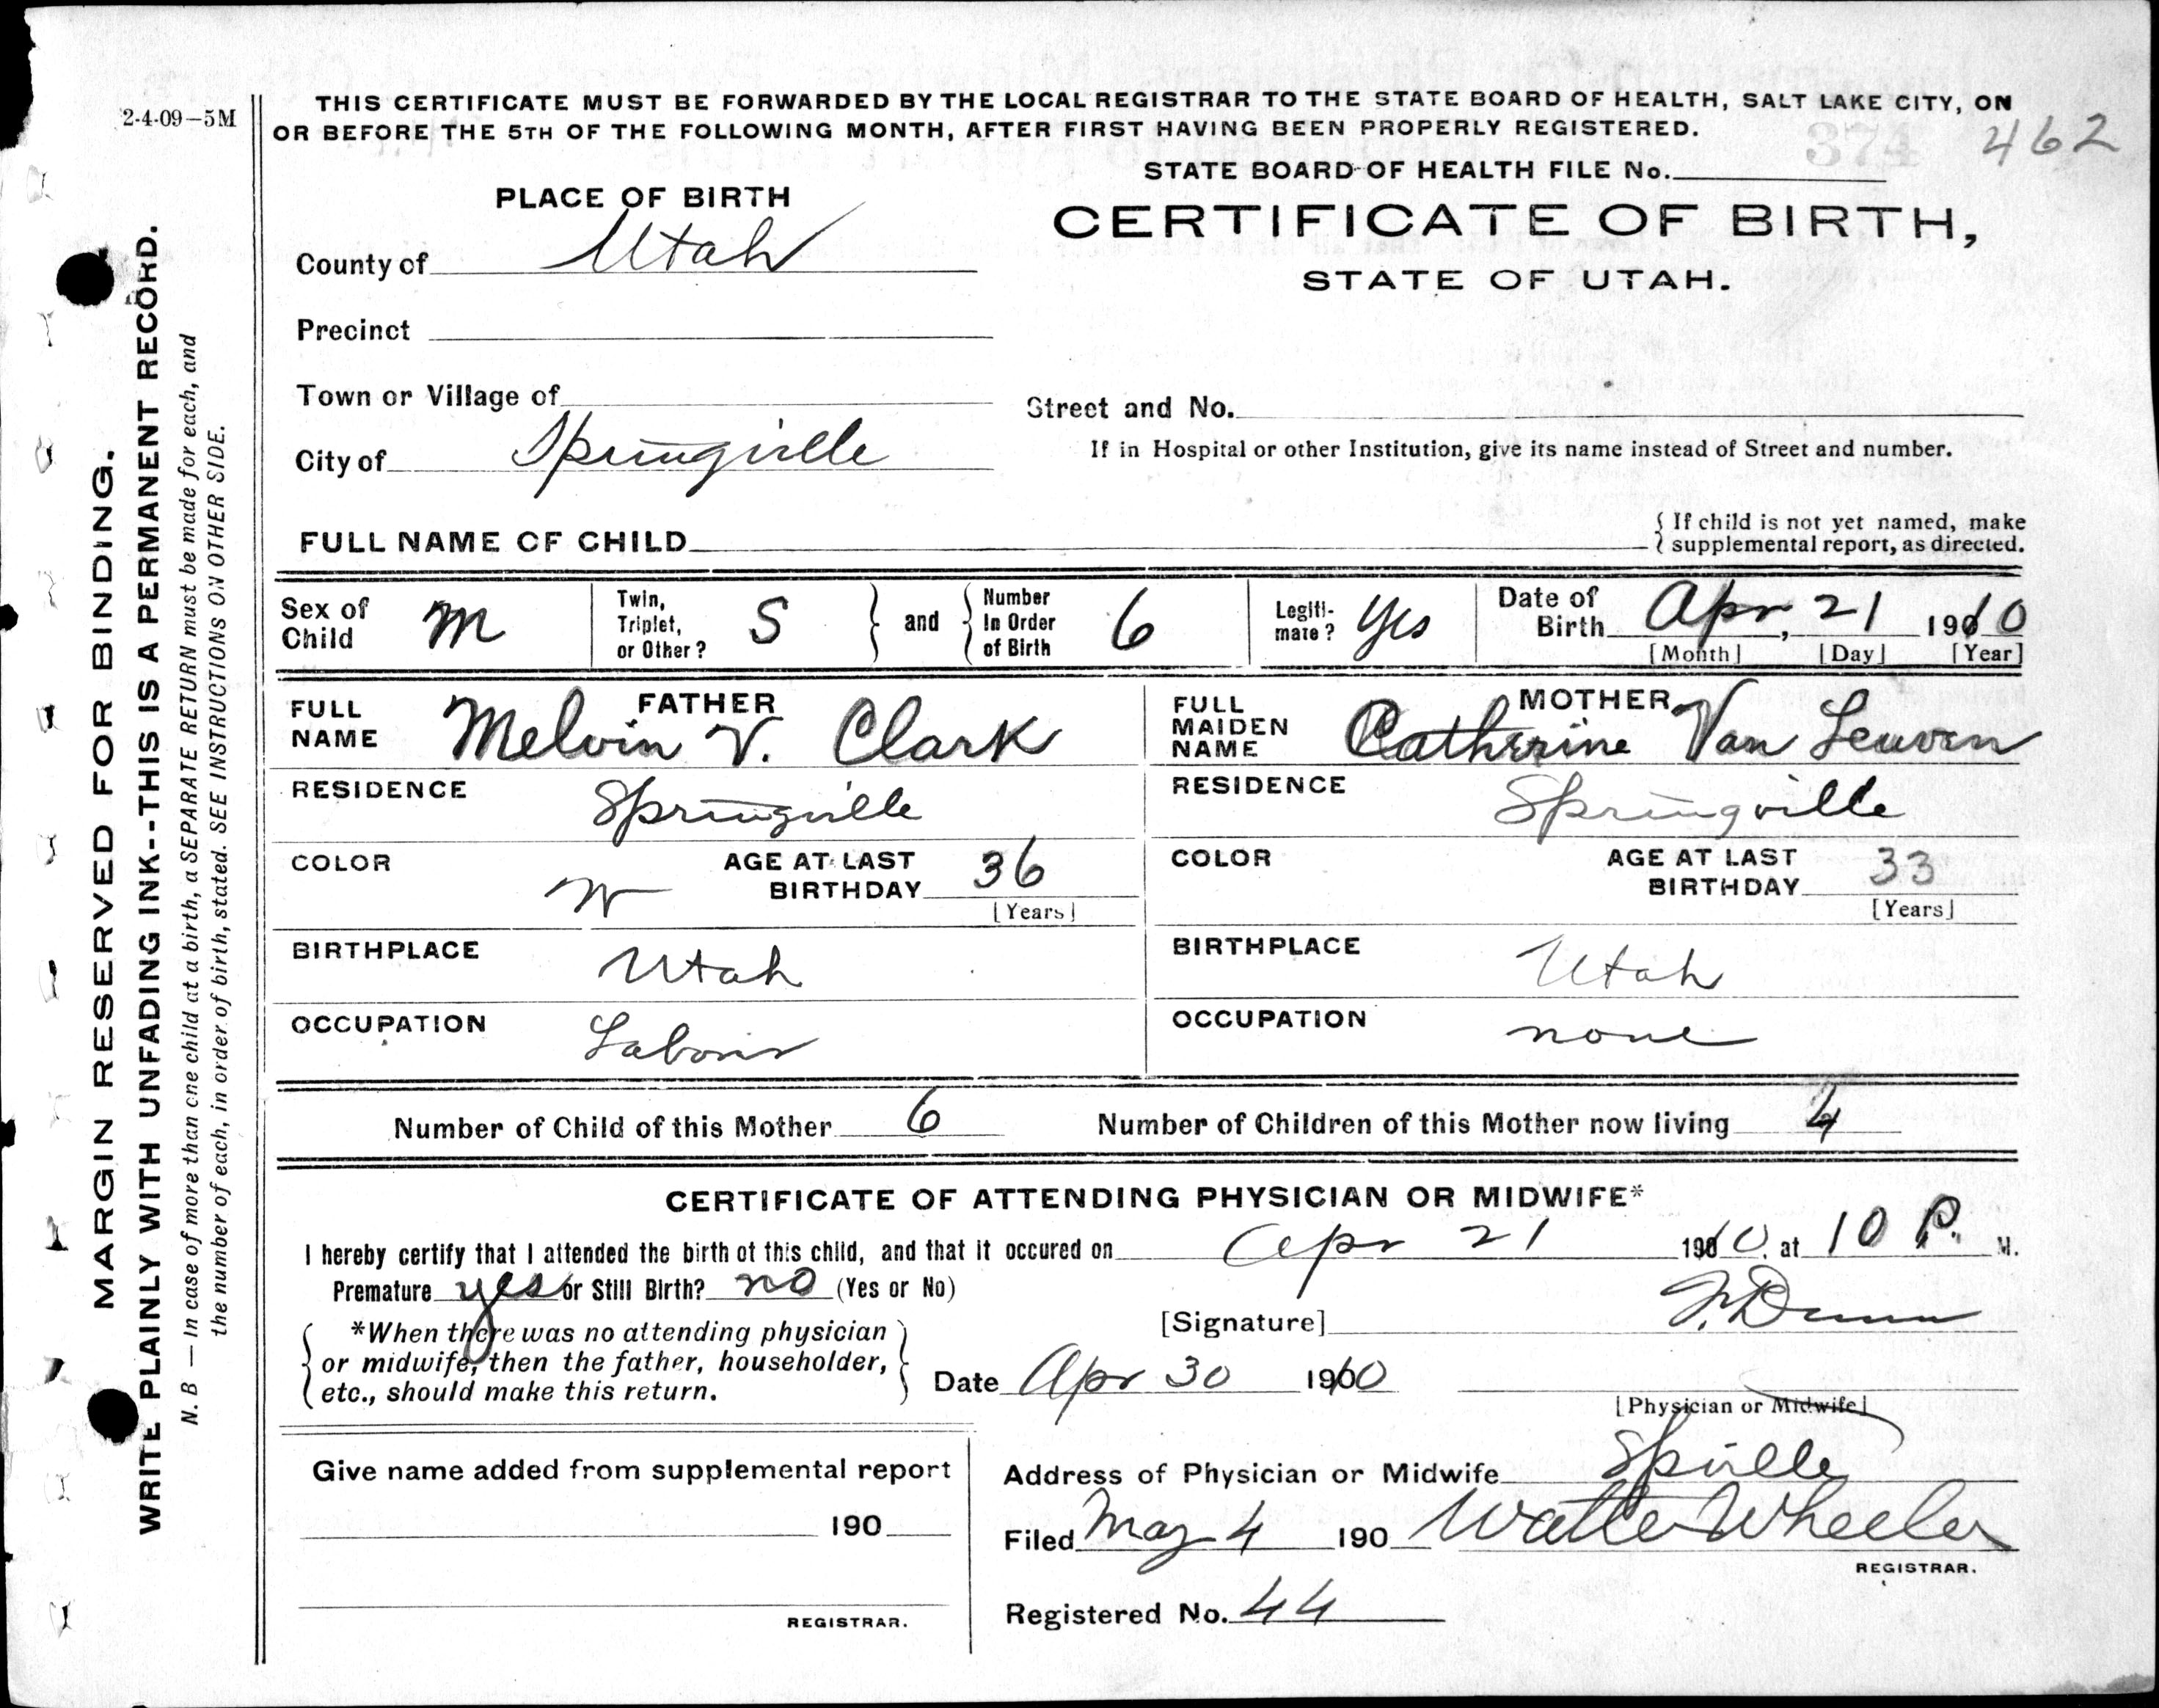 2-4-09-5M
THIS CERTIFICATE MUST BE FORWARDED BY THE LOCAL REGISTRAR TO THE STATE BOARD OF HEALTH, SALT LAKE CITY, ON
OR BEFORE THE 5TH OF THE FOLLOWING MONTH, AFTER FIRST HAVING BEEN PROPERLY REGISTERED.
374 462
STATE BOARD OF HEALTH FILE No.
PLACE OF BIRTH
CERTIFICATE OF BIRTH,
STATE OF UTAH.
County of Utah
Precinct
Town or Village of
Street and No.
City of Springville
If in Hospital or other Institution, give its name instead of Street and number.
FULL NAME OF CHILD
If child is not yet named, make
supplemental report, as directed.
Sex of Child M
Twin, Triplet, or Other? S
and
Number In Order of Birth 6
Legitimate? Yes
Date of Birth Apr, 21 1910
[Month] [Day] [Year]
FATHER
FULL NAME Melvin V. Clark
RESIDENCE Springville
COLOR W
AGE AT LAST BIRTHDAY 36
[Years]
BIRTHPLACE Utah
OCCUPATION Labour
MOTHER
FULL MAIDEN NAME Catherine Van Leuven
RESIDENCE Springville
COLOR
AGE AT LAST BIRTHDAY 33
[Years]
BIRTHPLACE Utah
OCCUPATION none
Number of Child of this Mother 6 Number of Children of this Mother now living 4
CERTIFICATE OF ATTENDING PHYSICIAN OR MIDWIFE*
I hereby certify that I attended the birth of this child, and that it occured on Apr 21 1910, at 10 P. M.
Premature yes or Still Birth? no (Yes or No)
*When there was no attending physician
or midwife, then the father, householder,
etc., should make this return.
[Signature] F. Dunn
Date Apr 30 1910
[Physician or Midwife]
Give name added from supplemental report
190
REGISTRAR.
Address of Physician or Midwife Spville
Filed May 4 190 Walter Wheeler
REGISTRAR.
Registered No. 44
MARGIN RESERVED FOR BINDING.
WRITE PLAINLY WITH UNFADING INK--THIS IS A PERMANENT RECORD.
N. B — In case of more than one child at a birth, a SEPARATE RETURN must be made for each, and
the number of each, in order of birth, stated. SEE INSTRUCTIONS ON OTHER SIDE.